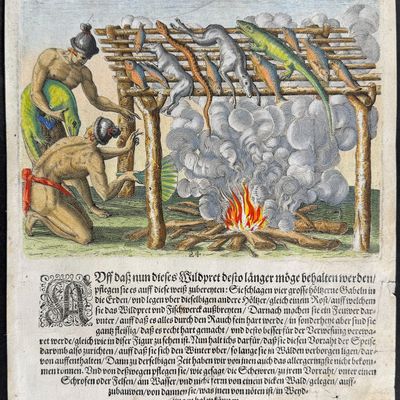 24
Vff daß nun dieses Wildpret desto länger möge behalten werden/
pflegen sie es auff diese weiß zubereyten: Sie schlagen vier grosse höltzerne Gabeln in
die Erden/ und legen uber dieselbigen andere Höltzer/ gleich einem Rost/ auff welchem
sie das Wildpret und Fischwerck außbreyten/ Darnach machen sie ein Feuwer dar-
unter/ auff daß es alles durch den Rauch fein hart werde/ in sonderheyt aber sind sie
gantz fleissig/ daß es recht hart gemacht/ und desto besser für der Verwesung verewa-
ret werde/ gleich wie in diser Figur zu sehen ist. Nun halt ichs darfür/ daß sie diesen Vorraht der Speise
darumb also zurichten/ auff daß sie sich den Winter uber/ so lange sie in Wälden verborgen ligen/ dar-
von auffenthalten. Dann zu derselbigen Zeit haben wir von jnen auch das allergeringste nicht bekom-
men können. Und von deßwegen pflegen sie/ wie gesagt/ die Schewren/ zu jrem Vorraht/ unter einen
Schrofen oder Felsen/ am Wasser/ und nicht fern von einem dicken Wald/ gelegen/ auff-
zubauwen/ von dannen sie/ was jnen von nöten ist/ in Weyd-